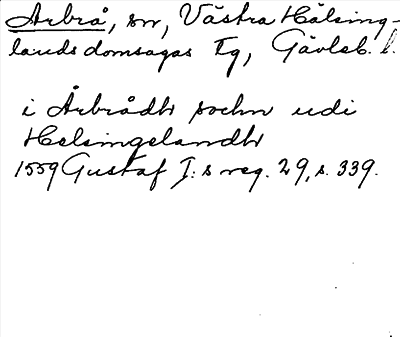 Arbrå, sn, Västra Hälsing-
lands domsagas tg, Gävleb. l.
i Årbrådh sochn udi
Helsingelandh
1559 Gustaf I:s reg. 29, s. 339.